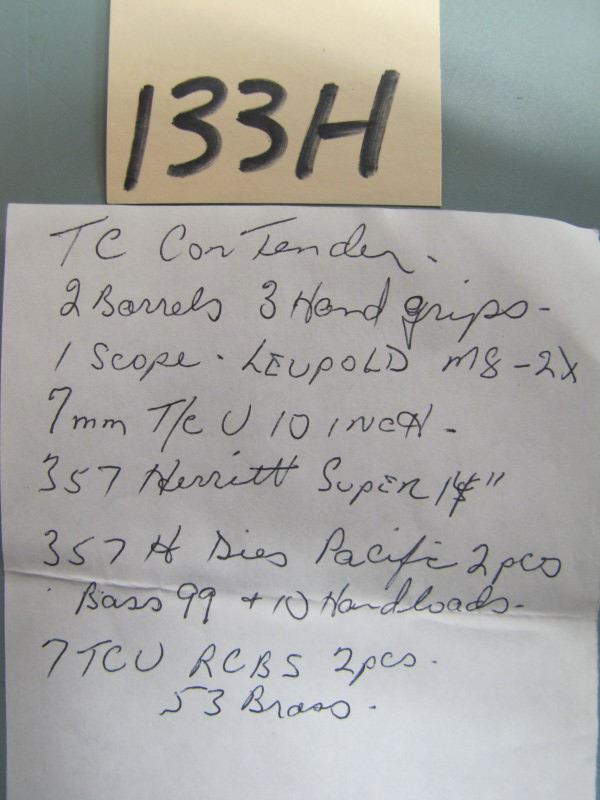 133H
TC Contender.
2 Barrels 3 Hand grips-
1 Scope. LEUPOLD M8-2X
7mm T/C U 10 INCH-
357 Herritt SUPER 14"
357 H Dies Pacific 2pcs
Bass 99 + 10 Handloads-
7 TCU RCBS 2pcs.
53 Brass.